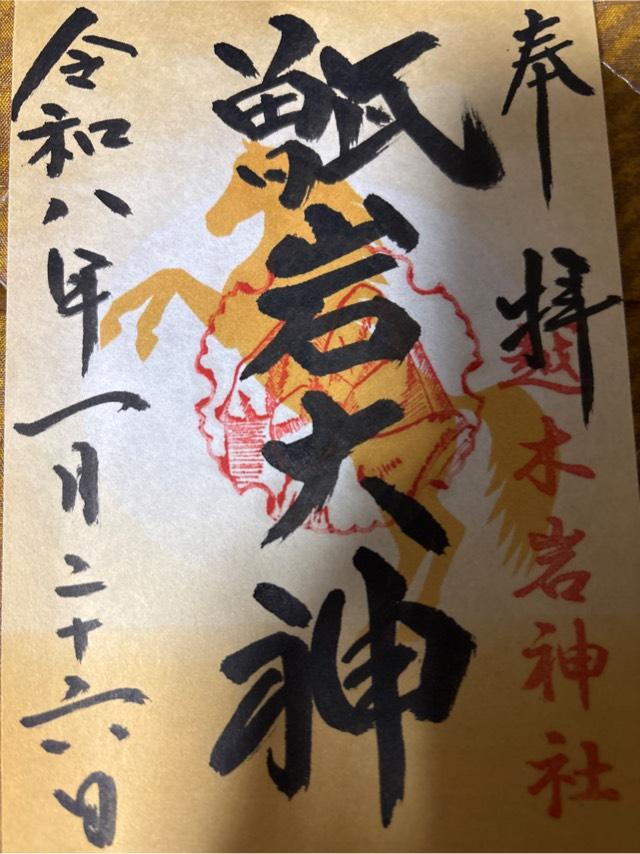 奉拝
越木岩神社
甑岩大神
令和八年一月二十六日